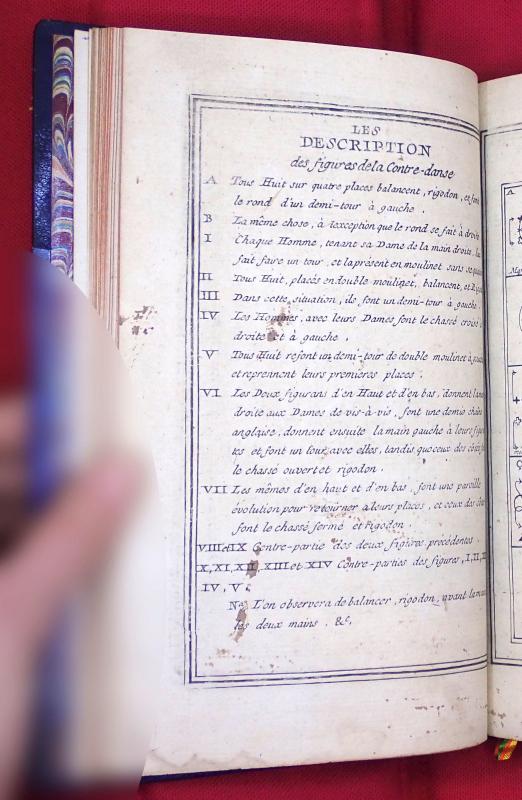 LES
DESCRIPTION
des figures de la Contre-danse
A Tous Huit sur quatre places balancent, rigodon, et font
le rond d'un demi-tour à gauche.
B La même chose, à lexception que le rond se fait à droite
I Chaque Homme, tenant sa Dame de la main droite, lui
fait faire un tour, et la présent en moulinet sans se
II Tous Huit, placés en double moulinet, balancent, et
III Dans cette situation, ils font un demi-tour à gauche
IV Les Hommes, avec leurs Dames font le chassé croisé
droite et à gauche,
V Tous Huit refont un demi-tour de double moulinet à
et reprennent leurs premieres places.
VI Les Deux figurans d'en Haut et d'en bas, donnent la
droite aux Dames de vis-à-vis, font une demie chaîne
anglaise, donnent ensuite la main gauche à leurs
tes et font un tour avec elles, tandis que ceux des côtés
le chassé ouvert et rigodon.
VII Les mêmes d'en haut et d'en bas, font une pareille
évolution pour retourner à leurs places, et ceux des
font le chassé fermé et Rigodon.
VIII et IX Contre-partie des deux figures précédentes.
X, XI, XII, XIII et XIV Contre-parties des figures, I, II,
IV, V.
Na L'on observera de balancer, rigodon, avant la
les deux mains. &c.
A